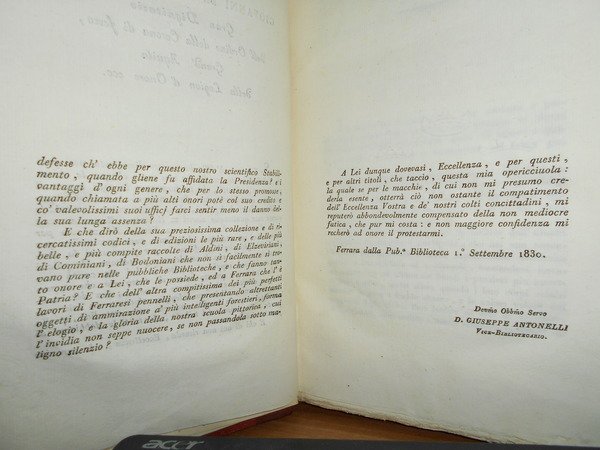 defesse ch' ebbe per questo nostro scientifico Stabili-
mento, quando gliene fu affidato la Presidenza? e i
vantaggi d' ogni genere, che per lo stesso promosse,
quando chiamata a più alti onori potè col suo credito e
co' valevolissimi suoi ufficj farci sentir meno il danno del-
la sua lunga assenza?
E che dirò della sua preziosissima collezione e di ri-
cercatissimi codici, e di edizioni le più rare, e delle più
belle, e più compite raccolte di Aldini, di Elzeviriani,
di Cominiani, di Bodoniani che non sì facilmente si tro-
vano pure nelle pubbliche Biblioteche, e che fanno tan-
to onore e a Lei, che le possiede, ed a Ferrara che l' è
Patria? E che dell' altra compitissima dei più perfetti
lavori di Ferraresi pennelli, che presentando altrettanti
oggetti di ammirazione a' più intelligenti forestieri, forma
l' elogio, e la gloria della nostra scuola pittorica, cui
l' invidia non seppe nuocere, se non passandola sotto ma-
ligno silenzio?
A Lei dunque dovevasi, Eccellenza, e per questi,
e per altri titoli, che taccio, questa mia opericciuola:
la quale se per le macchie, di cui non mi presumo cre-
derla esente, otterrà ciò non ostante il compatimento
dell' Eccellenza Vostra e de' nostri colti concittadini, mi
reputerò abbondevolmente compensato della non mediocre
fatica, che pur mi costa: e non maggiore confidenza mi
recherò ad onore il protestarmi.
Ferrara dalla Pub.ª Biblioteca 1.º Settembre 1830.
Devmo Obbmo Servo
D. GIUSEPPE ANTONELLI
VICE-BIBLIOTECARIO.
acer